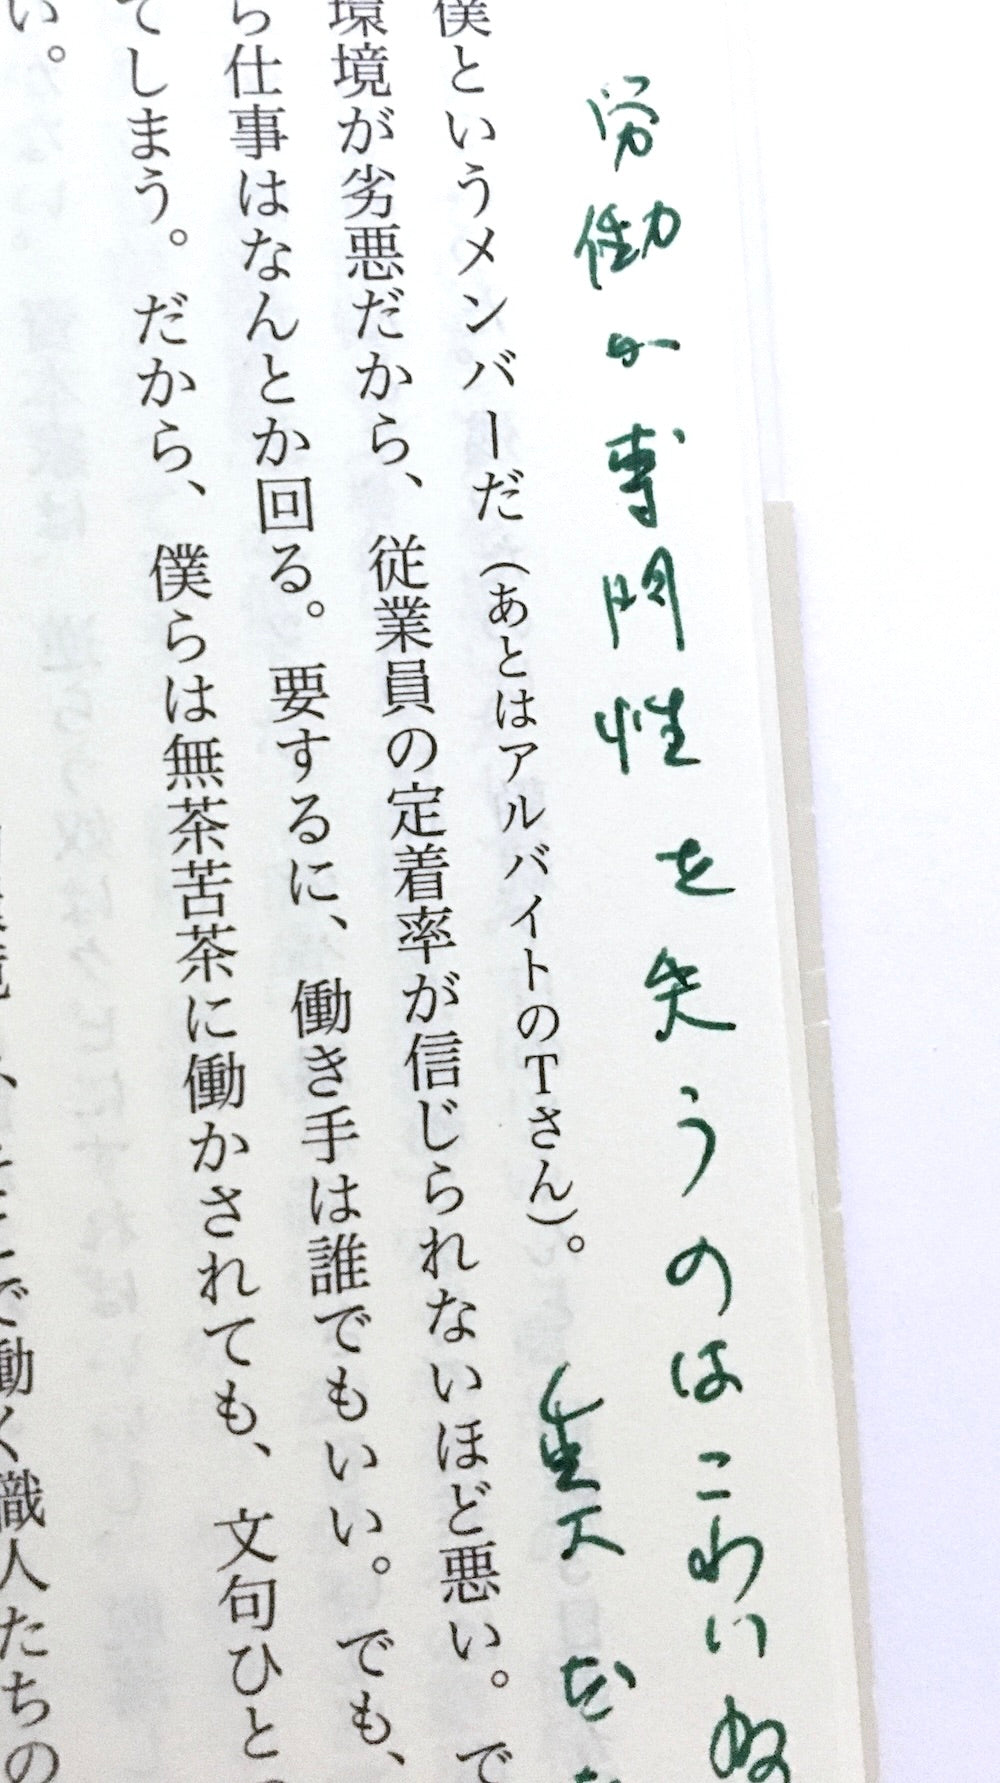 労働が専門性を失うのはこわい
を
僕というメンバーだ(あとはアルバイトのTさん)。
環境が劣悪だから、従業員の定着率が信じられないほど悪い。で
ら仕事はなんとか回る。要するに、働き手は誰でもいい。でも、
てしまう。だから、僕らは無茶苦茶に働かされても、文句ひと
い。
で働く職人たちの